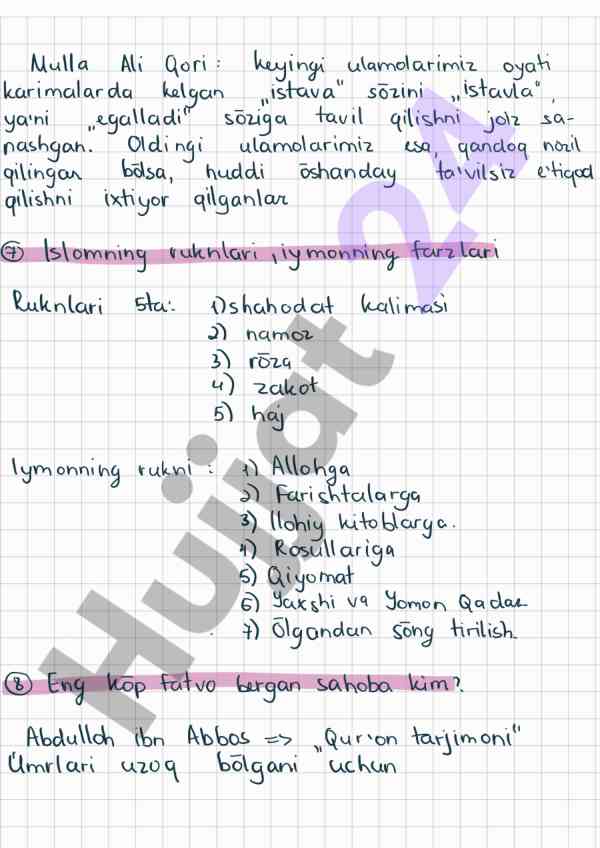 Mulla Ali Qori: keyingi ulamolarimiz oyati
karimalarda kelgan „istava“ sōzini „istavla“,
ya'ni „egalladi“ sōziga tavil qilishni joiz sa-
nashgan. Oldingi ulamolarimiz esa, qandoq nozil
qilingan bōlsa, huddi ōshanday ta'vilsiz e'tiqod
qilishni ixtiyor qilganlar
⑦ Islomning ruknlari, iymonning farzlari
Ruknlari 5ta: 1) shahodat kalimasi
2) namoz
3) rōza
4) zakot
5) haj
Iymonning rukni: 1) Allohga
2) Farishtalarga
3) Ilohiy kitoblarga.
4) Rosullariga
5) Qiyomat
6) Yaxshi va Yomon Qadar
7) Ōlgandan sōng tirilish.
⑧ Eng kōp fatvo bergan sahoba kim?
Abdulloh ibn Abbos => „Qur'on tarjimoni“
Umrlari uzoq bōlgani uchun
Hujjat 24